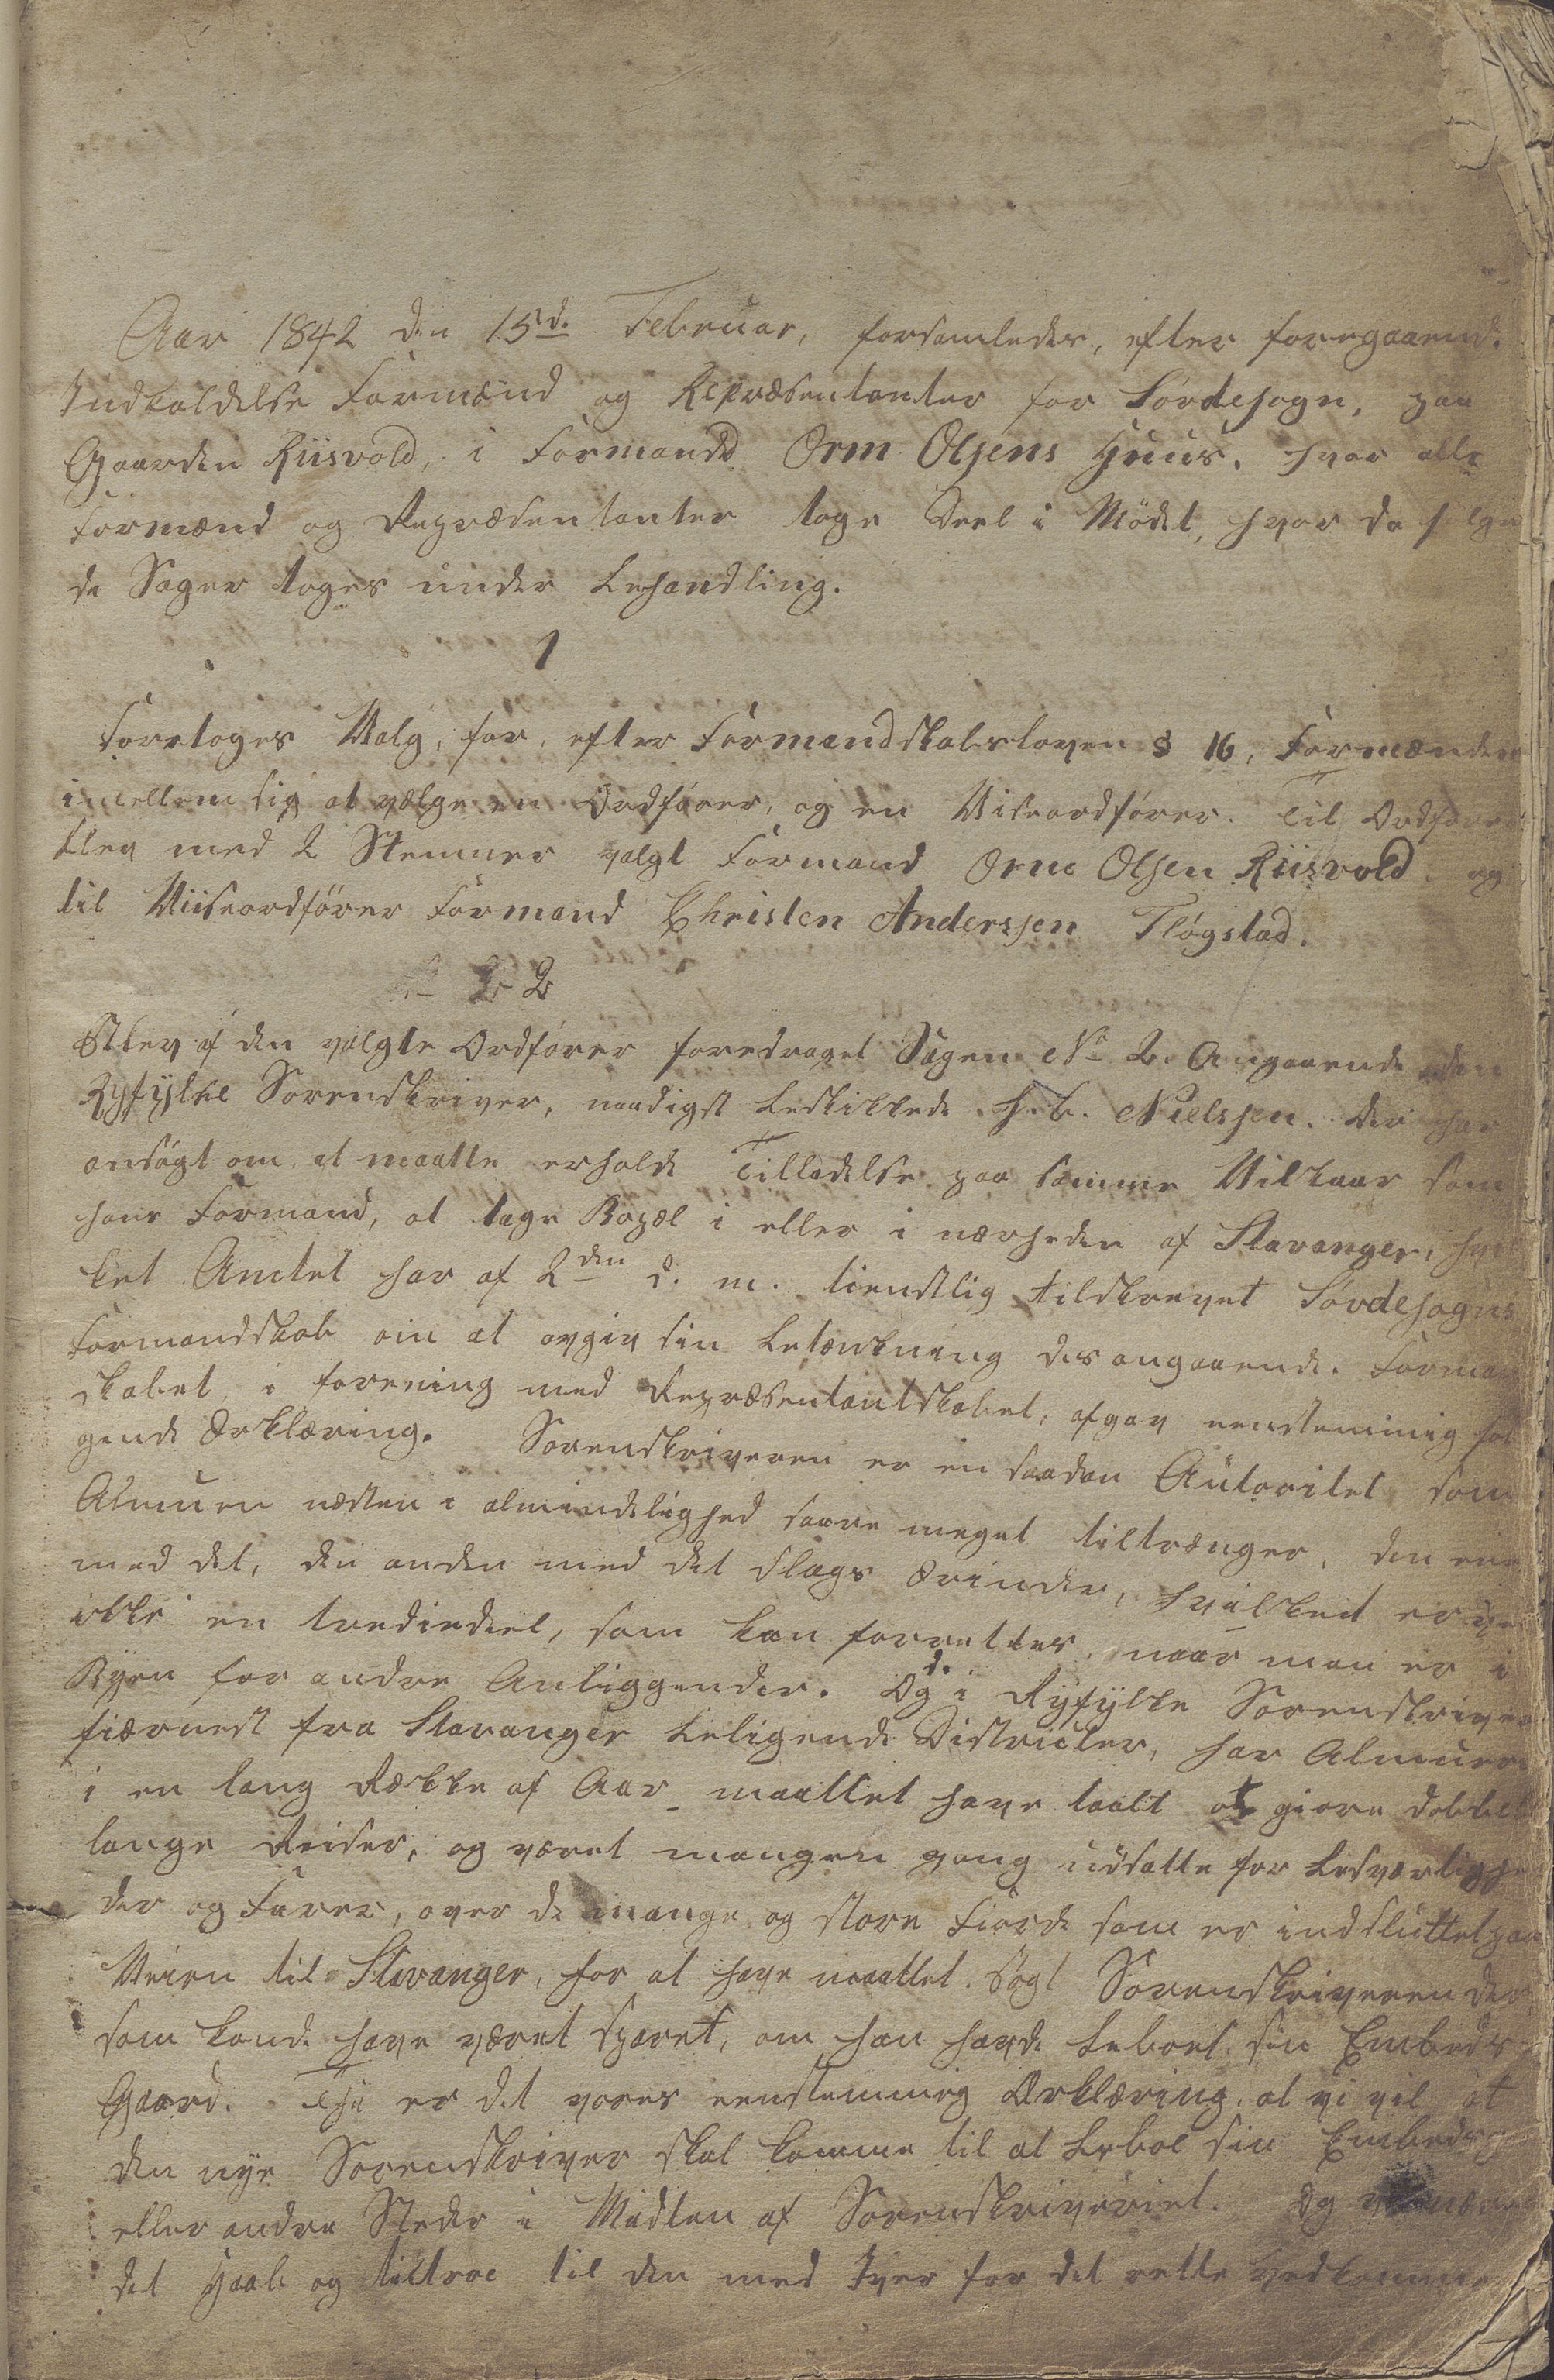 Aar 1842 den 15d. Februar, forsamledes, efter foregaaende
Indkaldelse Formænd og Repræsentanter for Søvdesogn, paa
Gaarden Riisvold, i Formand Orm Olsens Huus, hvor alle
Formænd og Repræsentanter toge Deel i Mödet, hvor da følgen
de Sager toges under behandling.
1
Foretoges Valg, for, efter Formandskabsloven § 16, Formænden
imellem sig at vælge en Ordfører, og en Viseordfører. Til Ordfører
blev med 2 Stemmer valgt Formand Orm Olsen Riisvold og
til Viiseordförer Formand Christen Anderssen Fløgstad.
2
Blev af den valgte Ordfører foredraget Sagen No 2. Angaaende den
Ryfylke Sorenskriver, naadigst beskikkede Hr. Nielssen. der har
ansøgt om at maatte erholde Tilladelse paa samme Vilkaar som
hans Formand, at tage Bopæl i eller i nærheden af Stavanger, hvil
ket Amtet har af 2den d. m. tienstlig tilskrevet Søvdesogns
Formandskab om at avgiv sin betænkning des angaaende. Forman
skabet i forening med Repræsentantskabet, afgav eenstemmig føl
gende Erklæring. Sorenskriveren er en saadan Autoritet som
Almuen næsten i almindelighed saare meget tiltrænger, den ene
med det, den anden med det slags Ærinder, hvilket er
ikke en trediedeel, som kan forrettes, naar man er i
Byen for andre Anliggender. Og i de Ryfylke Sorenskriver
fiærnest fra Stavanger beligende Districter, har Almuen
i en lang Række af Aar maattet have taalt at giøre dobbelt
lange Reiser, og været mangen gang udsatte for besværlighe
der og Farer, over de mange og store Fiorde som er indsluttet paa
Veien til Stavanger, for at have maattet søgt Sorenskriveren der
som kunde have været sparet, om han havde beboet sin Embeds
Gaard. Thi er det vores eenstemmig Erklæring, at vi vil at
den nye Sorenskriver skal komme til at beboe sin Embedsg
eller andre Steder i Midten af Sorenskriveriet. Og
det Haab og tiltroe til den med Iver for det rette vedkomme